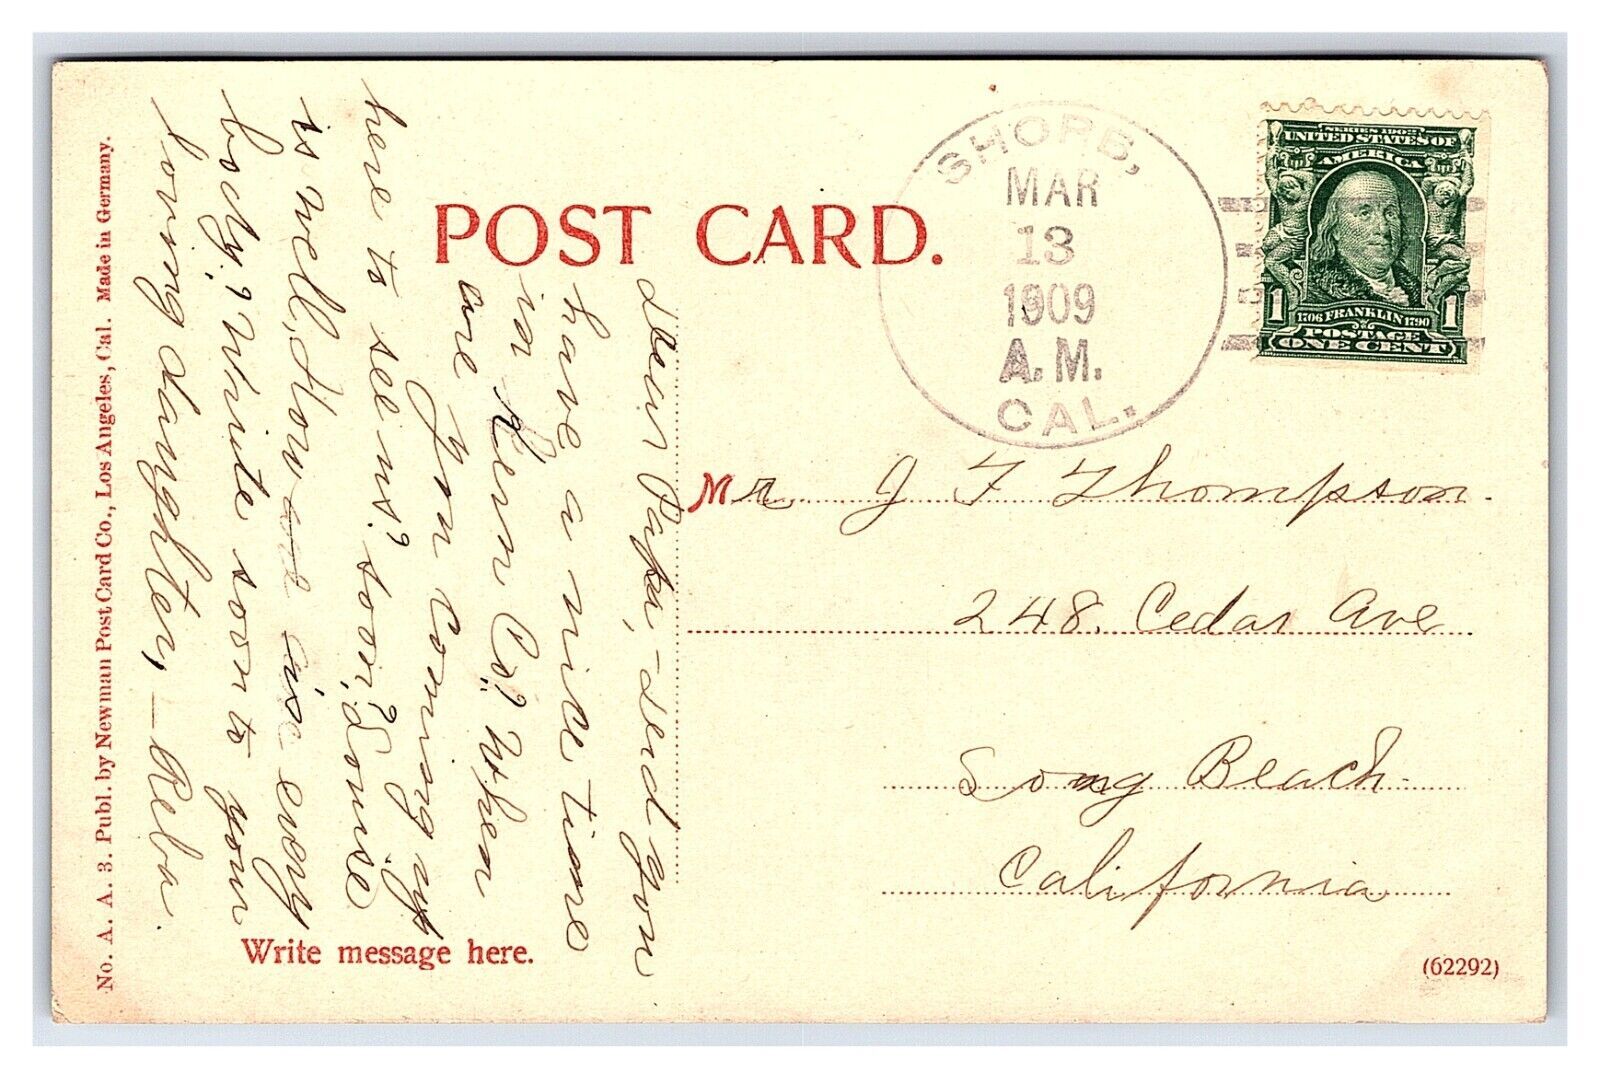 POST CARD.
SHORB,
MAR
13
1909
A.M.
CAL.
SERIES 1902
UNITED STATES OF
AMERICA
1 1706 FRANKLIN 1790 1
POSTAGE
ONE CENT
Mr. J F Thompson.
248. Cedar Ave
Long Beach
California
(62292)
Dear Papa, - Did you
have a nice time
in Kern Co? When
are you coming up
here to see us? soon? Louise
is well, How are is every
body? Write soon to your
loving daughter, - Reba.
Write message here.
No. A. A. 3. Publ. by Newman Post Card Co., Los Angeles, Cal. Made in Germany.